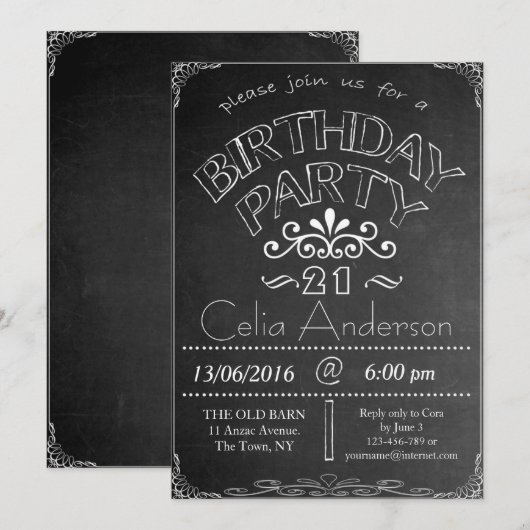 please join us for a
BIRTHDAY
PARTY
21
Celia Anderson
13/06/2016 @ 6:00 pm
THE OLD BARN
11 Anzac Avenue.
The Town, NY
Reply only to Cora
by June 3
123-456-789 or
yourname@internet.com